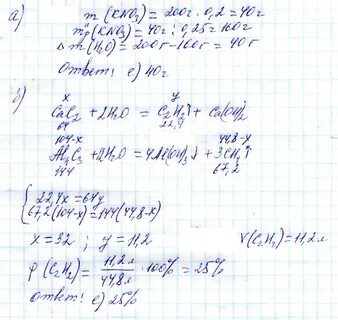 а) m(KNO₃) = 200г · 0,2 = 40г
mр(KNO₃) = 40г : 0,25 = 160г
Δ m(H₂O) = 200г - 160г = 40г
Ответ: с) 40г
б) x y
CaC₂ + 2H₂O = C₂H₂↑ + Ca(OH)₂
64 22,4
104-x 44,8-x
Al₄C₃ + 12H₂O = 4Al(OH)₃↓ + 3CH₄↑
144 67,2
{ 22,4x = 64y
67,2(104-x) = 144(44,8-x)
x = 32 ; y = 11,2 V(C₂H₂) = 11,2л
φ(C₂H₂) = 11,2л / 44,8л · 100% = 25%
Ответ: с) 25%